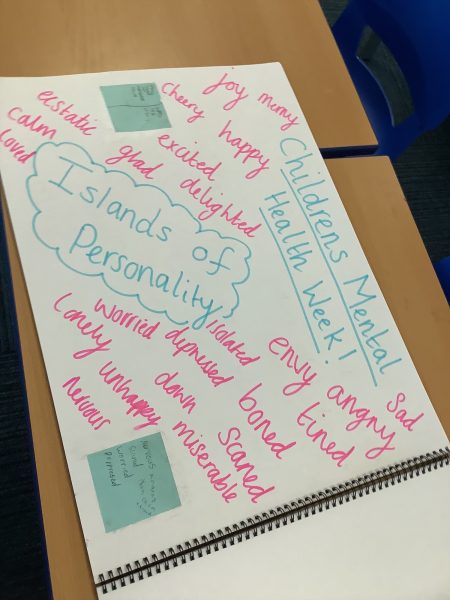 Childrens Mental
Health Week!
Islands of
Personality
joy
merry
cheery
happy
ecstatic
excited
calm
glad
delighted
loved
worried
isolated
lonely
depressed
envy
angry
sad
unhappy
down
bored
tired
nervous
miserable
scared
nervous
worried
Depressed